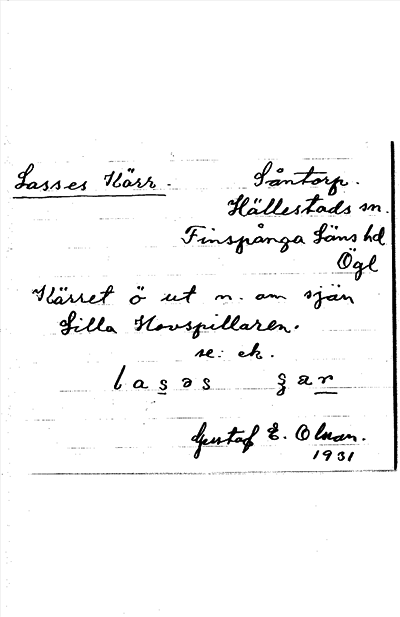 Lasses Kärr. Såntorp.
Hällestads sn.
Finspånga Läns hd
Ögl
Kärret ö ut n. om sjön
Lilla Hovspillaren.
se: ek.
Gustaf E. Olson.
1931